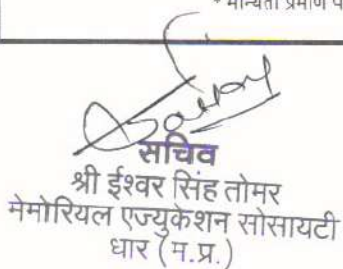 * मान्यता प्रमाण
सचिव
श्री ईश्वर सिंह तोमर
मेमोरियल एज्युकेशन सोसायटी
धार (म.प्र.)